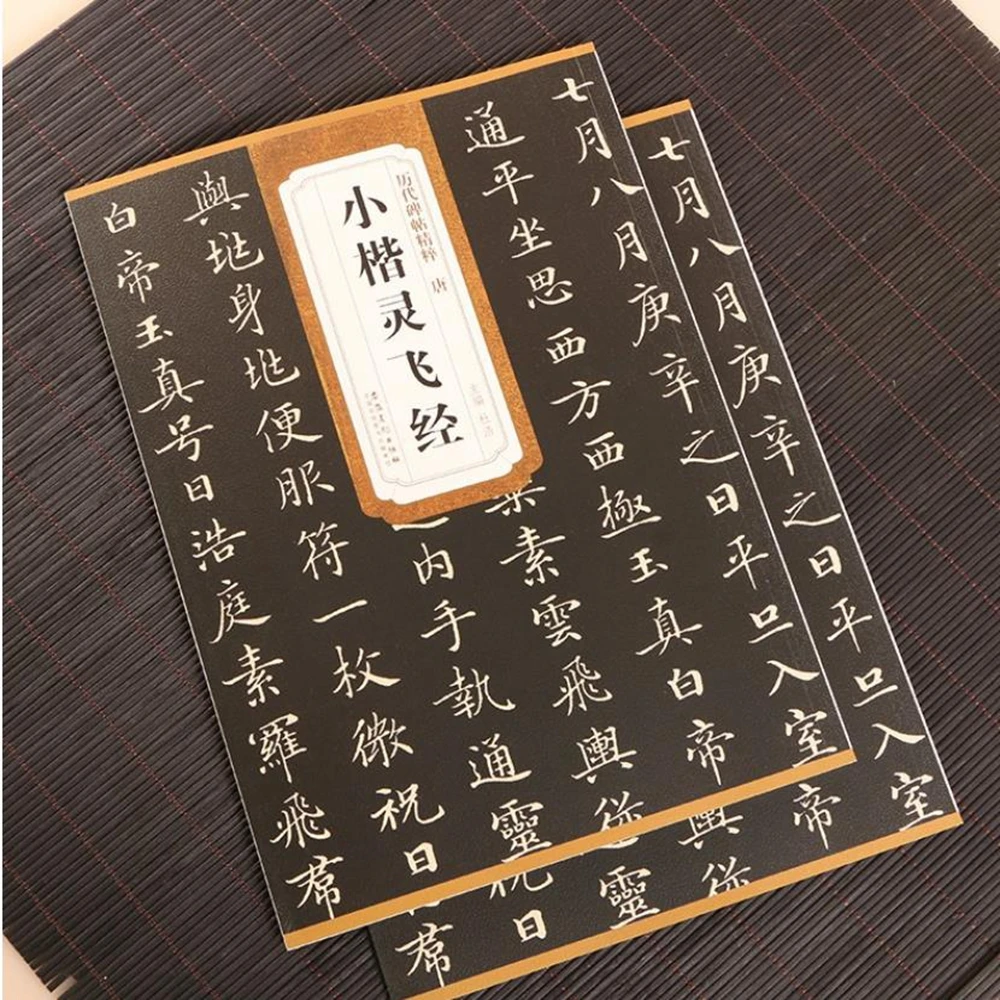 七月八月庚辛之日平旦入室
通平坐思西方西極玉真白帝
素雲飛輿從
内手執通靈
輿地身地便服符一枚微祝曰
白帝玉真号曰浩庭素羅飛帬
历代碑帖精粹 唐
小楷灵飞经
主编 杜浩
七月八月庚辛之日平旦入室
帝
輿從
靈
祝曰
帬